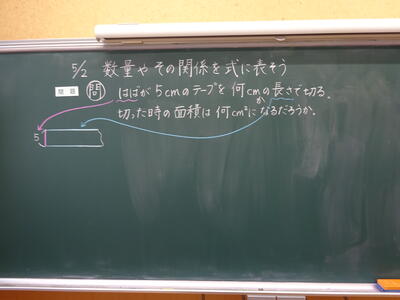 5/2 数量やその関係を式に表そう
問題 問 はばが5cmのテープを何cmかの長さで切る.
切った時の面積は何cm²になるだろうか.
5